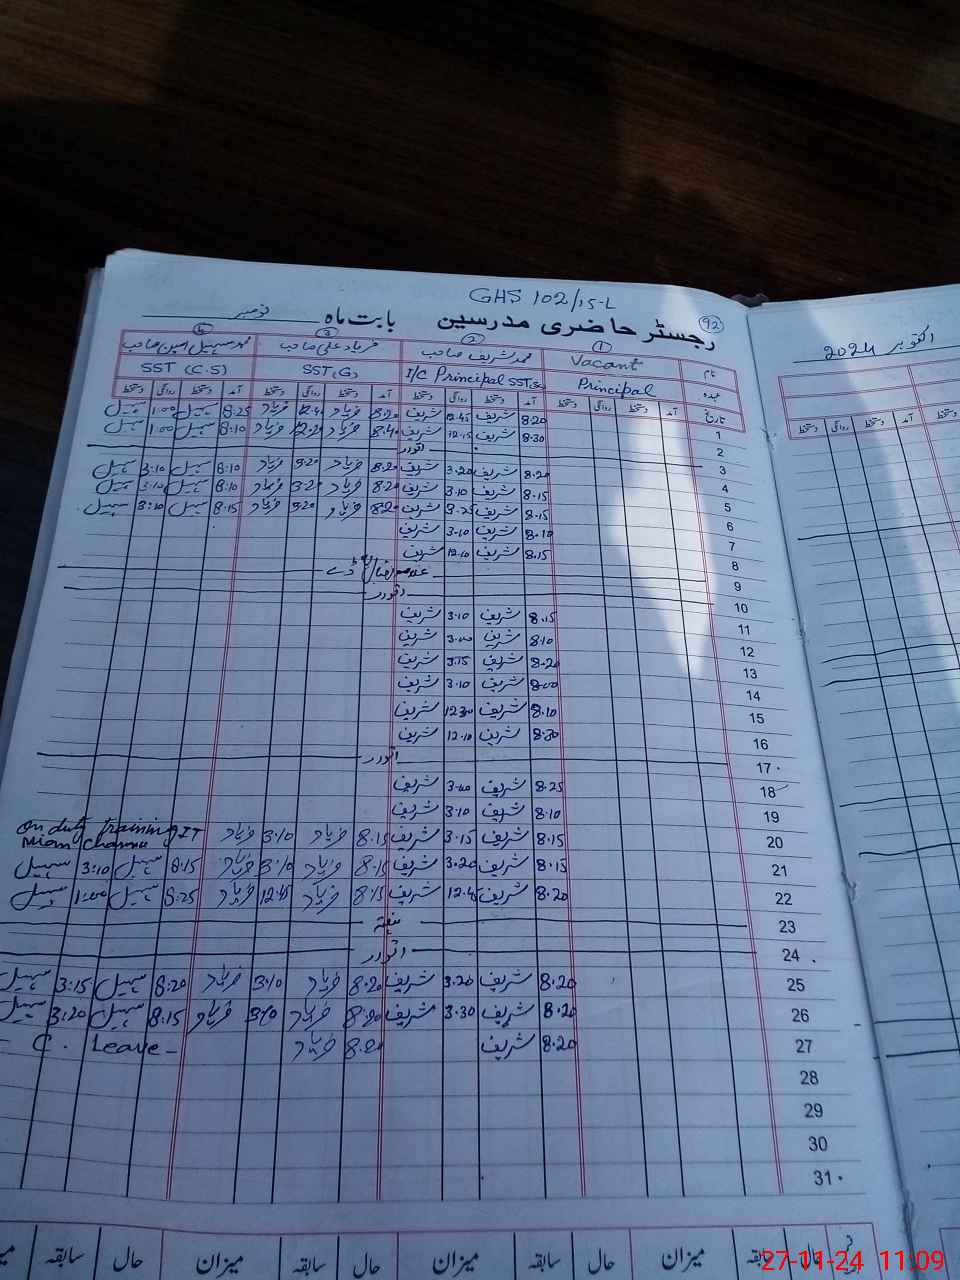 GHS 102/15-L
رجسٹر حاضری مدرسین بابت ماہ نومبر
92
اکتوبر 2024
نام 1 Vacant 2 محمد شریف صاحب 3 فریاد علی صاحب 4 محمد سہیل امین صاحب
عہدہ Principal I/C Principal SST(G) SST (C.S)
تاریخ آمد دستخط روانگی دستخط آمد دستخط روانگی دستخط آمد دستخط روانگی دستخط آمد دستخط روانگی دستخط
آمد دستخط روانگی دستخط
1 8:20 شریف 12.45 شریف 8:20 فریاد 12.40 فریاد 8:25 سہیل 1:00 سہیل
2 8:30 شریف 12.15 شریف 8:40 فریاد 12.20 فریاد 8:10 سہیل 1:00 سہیل
3 اتوار
4 8.20 شریف 3.20 شریف 8.20 فریاد 3.20 فریاد 8:10 سہیل 3:10 سہیل
5 8.15 شریف 3.10 شریف 8.20 فریاد 3.20 فریاد 8:10 سہیل 3:10 سہیل
6 8.15 شریف شریف 8:20 فریاد 3.20 فریاد 8:15 سہیل 3:10 سہیل
7 8.10 شریف 3.10 شریف
8 8.15 شریف 12.10 شریف
9 علامہ اقبال ڈے
10 اتوار
11 8.15 شریف 3.10 شریف
12 8.10 شریف شریف
13 8.20 شریف 3.15 شریف
14 8.00 شریف 3.10 شریف
15 8.10 شریف 12.30 شریف
16 8.30 شریف 12.10 شریف
17 اتوار
18 8.25 شریف شریف
19 8.10 شریف 3.10 شریف
20 8.15 شریف 3.15 شریف 8.15 فریاد 3.10 فریاد On duty training IT
Mian Channu
21 8.15 شریف 3.20 شریف 8.15 فریاد 3.10 فریاد 8:15 سہیل 3:10 سہیل
22 8.20 شریف 12.45 شریف 8.15 فریاد 12.45 فریاد 8:25 سہیل 1:00 سہیل
23 ہفتہ
24 اتوار
25 8.20 شریف 3.20 شریف 8.20 فریاد 3.10 فریاد 8:20 سہیل 3:15 سہیل
26 8.20 شریف 3.30 شریف 8.20 فریاد 3.10 فریاد 8:15 سہیل 3:20 سہیل
27 8.20 شریف 8.20 فریاد C. Leave
28
29
30
31
میزان حال سابقہ میزان حال سابقہ میزان حال سابقہ
27-11-24 11:09